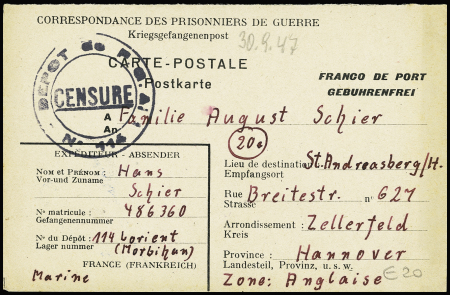 CORRESPONDANCE DES PRISONNIERS DE GUERRE
Kriegsgefangenenpost
30.9.47
CARTE-POSTALE
Postkarte
FRANCO DE PORT
GEBUHRENFREI
DEPOT de P.G.A.
CENSURE
No 114
A Familie August Schier
An
20a
EXPÉDITEUR - ABSENDER
NOM et PRÉNOM : Hans
Vor-und Zuname
Schier
No matricule : 486360
Gefangenennummer
No du Dépôt : 114 Lorient
Lager nummer (Morbihan)
FRANCE (FRANKREICH)
Marine
Lieu de destination St. Andreasberg/H.
Empfangsort
Rue Breitestr. no 627
Strasse
Arrondissement : Zellerfeld
Kreis
Province : Hannover
Landesteil, Provinz, u. s. w.
Zone: Anglaise
E20